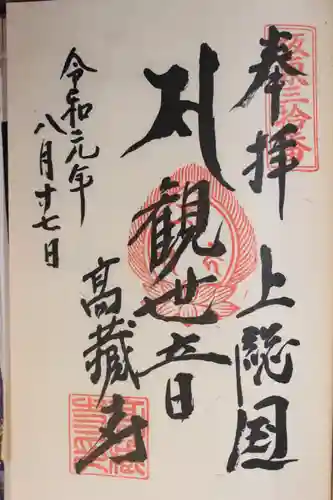 坂東三拾番
奉拝 上総国
観世音
高藏寺
令和元年
八月廿七日